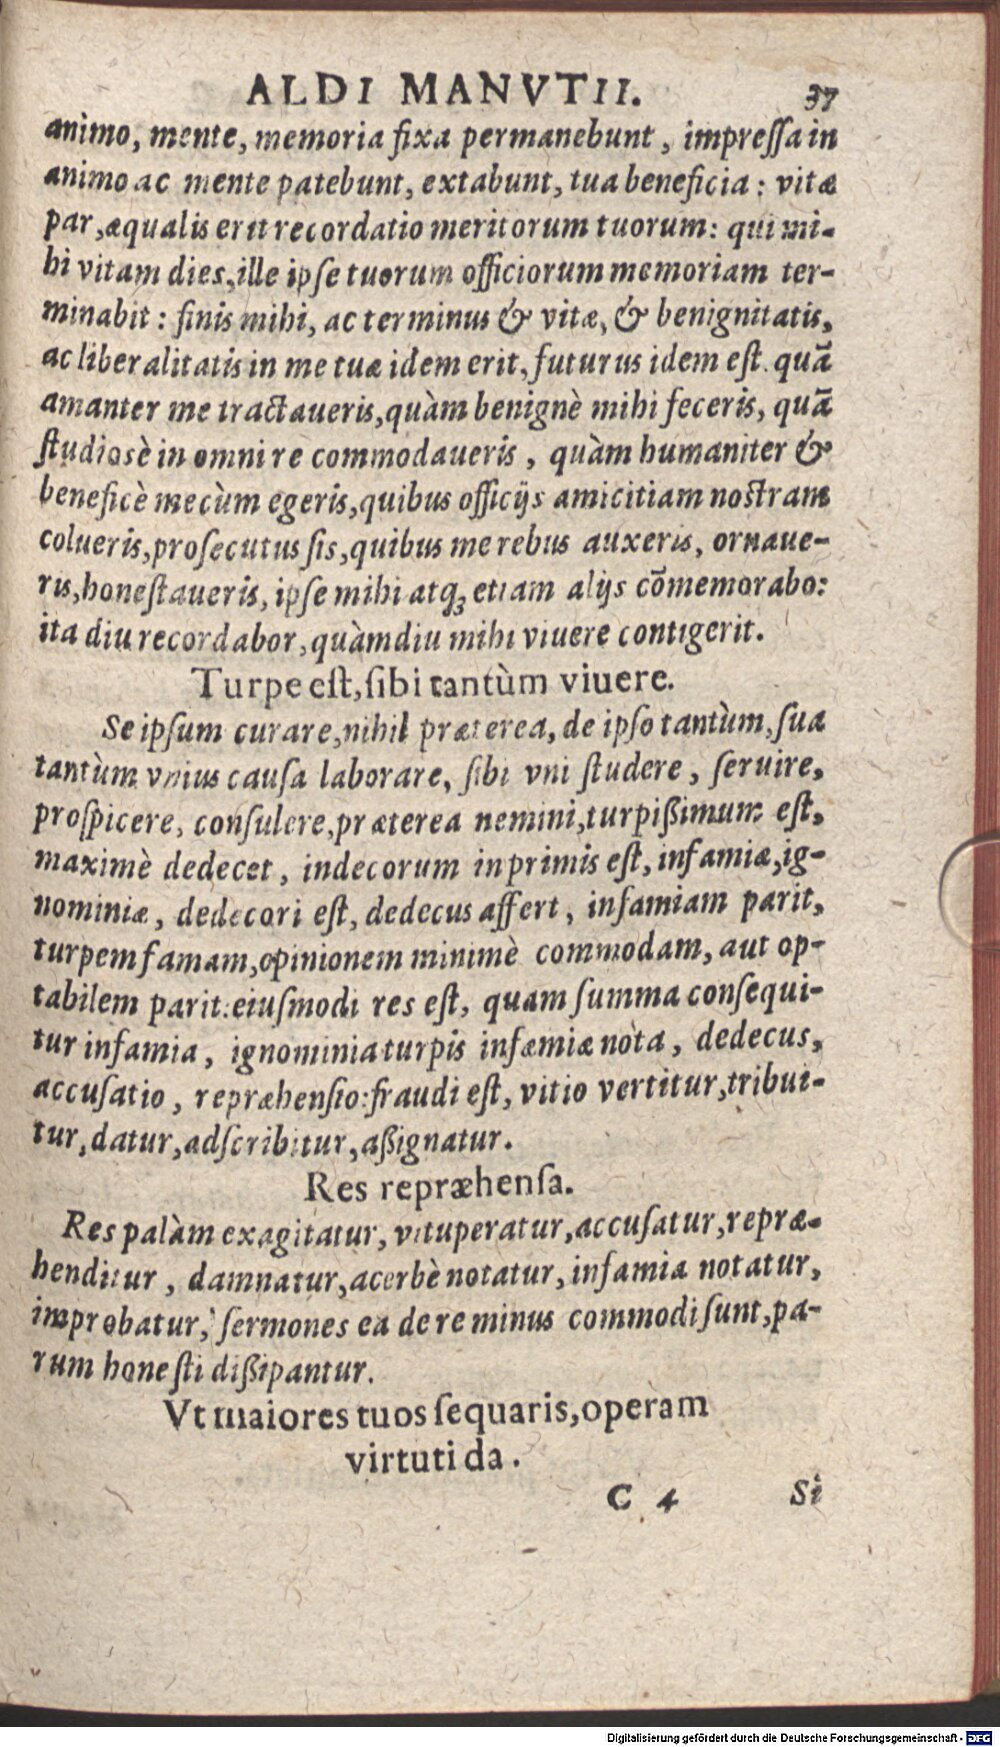 ALDI MANVTII. 37
animo, mente, memoria fixa permanebunt, impreſſa in
animo ac mente patebunt, extabunt, tua beneficia: vitæ
par, æqualis erit recordatio meritorum tuorum: qui mi-
hi vitam dies, ille ipſe tuorum officiorum memoriam ter-
minabit: finis mihi, ac terminus & vitæ, & benignitatis,
ac liberalitatis in me tuæ idem erit, futurus idem eſt. quã
amanter me tractaueris, quàm benignè mihi feceris, quã
ſtudiosè in omni re commodaueris, quàm humaniter &
beneficè mecùm egeris, quibus officijs amicitiam noſtram
colueris, proſecutus ſis, quibus me rebus auxeris, ornaue-
ris, honeſtaueris, ipſe mihi atq; etiam alijs cõmemorabo:
ita diu recordabor, quàmdiu mihi viuere contigerit.
Turpe eſt, ſibi tantùm viuere.
Se ipſum curare, nihil præterea, de ipſo tantùm, ſua
tantùm vnius cauſa laborare, ſibi vni ſtudere, ſeruire,
proſpicere, conſulere, præterea nemini, turpißimum eſt,
maximè dedecet, indecorum inprimis eſt, infamiæ, ig-
nominiæ, dedecori eſt, dedecus affert, infamiam parit,
turpem famam, opinionem minimè commodam, aut op-
tabilem parit: eiuſmodi res eſt, quam ſumma conſequi-
tur infamia, ignominia turpis infæmiæ nòta, dedecus,
accuſatio, repræhenſio: fraudi eſt, vitio vertitur, tribui-
tur, datur, adſcribitur, aßignatur.
Res repræhenſa.
Res palàm exagitatur, vituperatur, accuſatur, repræ-
henditur, damnatur, acerbè notatur, infamia notatur,
improbatur, ſermones ea de re minus commodi ſunt, pa-
rum honeſti dißipantur.
Vt maiores tuos ſequaris, operam
virtuti da.
C 4 Si
Digitalisierung gefördert durch die Deutsche Forschungsgemeinschaft - DFG